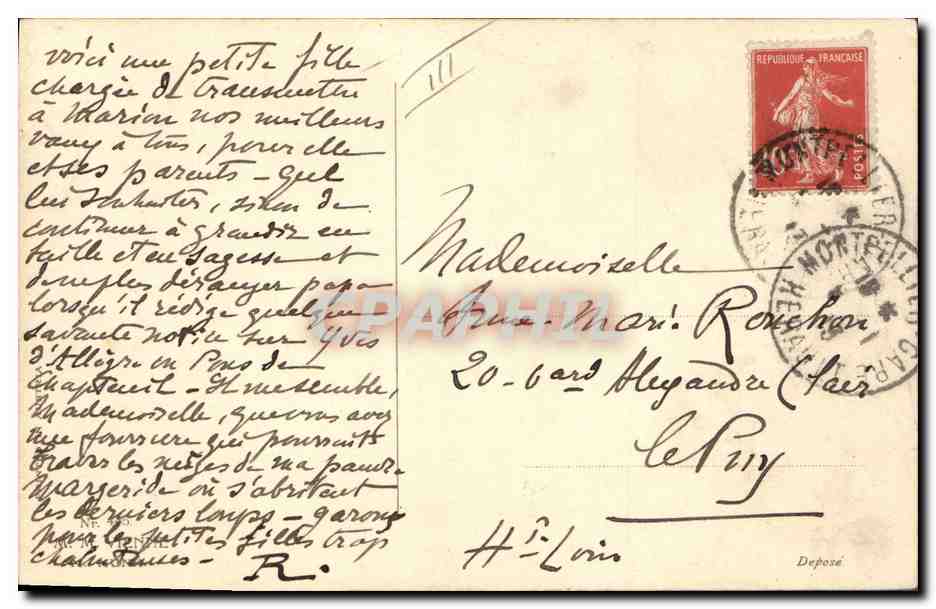 voici une petite fille
chargée de transmettre
à Marion nos meilleurs
vœux à tous, pour elle
et ses parents - Quel
les souhaiter, sinon de
continuer à grandir en
taille et en sagesse et
de ne plus déranger papa
lorsqu'il rédige quelque
savante notice sur Yves
d'Allègre ou Pons de
Chapteuil - Il me semble,
Mademoiselle, que vous avez
une fourrure qui pourrait
braver les neiges de ma pauvre
Margeride où s'abritent
les derniers loups - garous
pour les petites filles trop
R.
III
REPUBLIQUE FRANÇAISE
10
POSTES
MONTPELLIER
MONTPELLIER GARE
HERAULT
Mademoiselle
Anne-Marie Rouchon
20 - bard Alexandre Clair
le Puy
Hte Loire
CPAPHIL
Nr.
M. M. VIENNE
Deposé